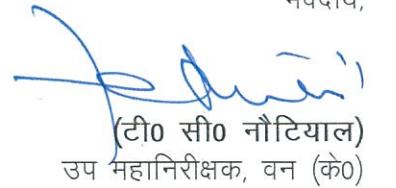 भवदीय,
(टी0 सी0 नौटियाल)
उप महानिरीक्षक, वन (के0)